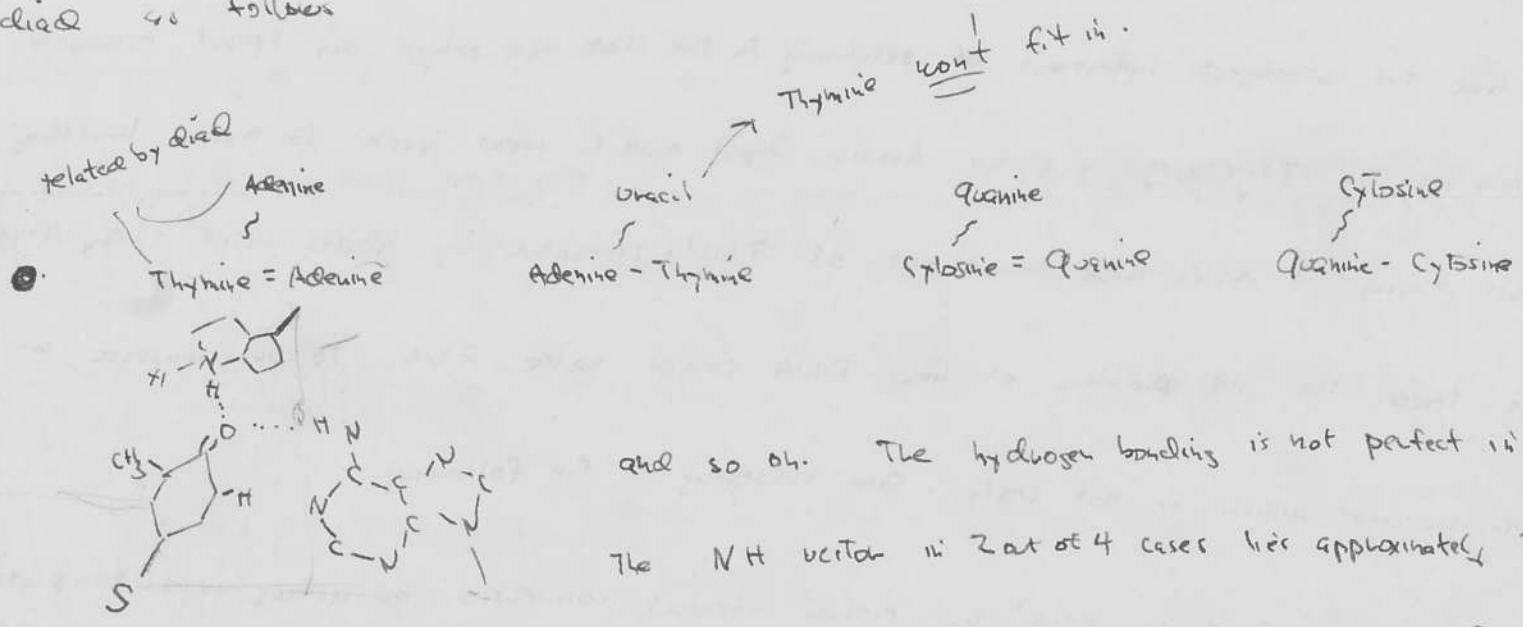 diad as follows
Thymine won't fit in.
related by diad
Adenine Uracil Guanine Cytosine
Thymine = Adenine Adenine - Thymine Cytosine = Guanine Guanine - Cytosine
N
H
O .... H N
CH3
H
N C C N C
C N C N
S
and so on. The hydrogen bonding is not perfect in
The NH vector in 2 out of 4 cases lies approximately